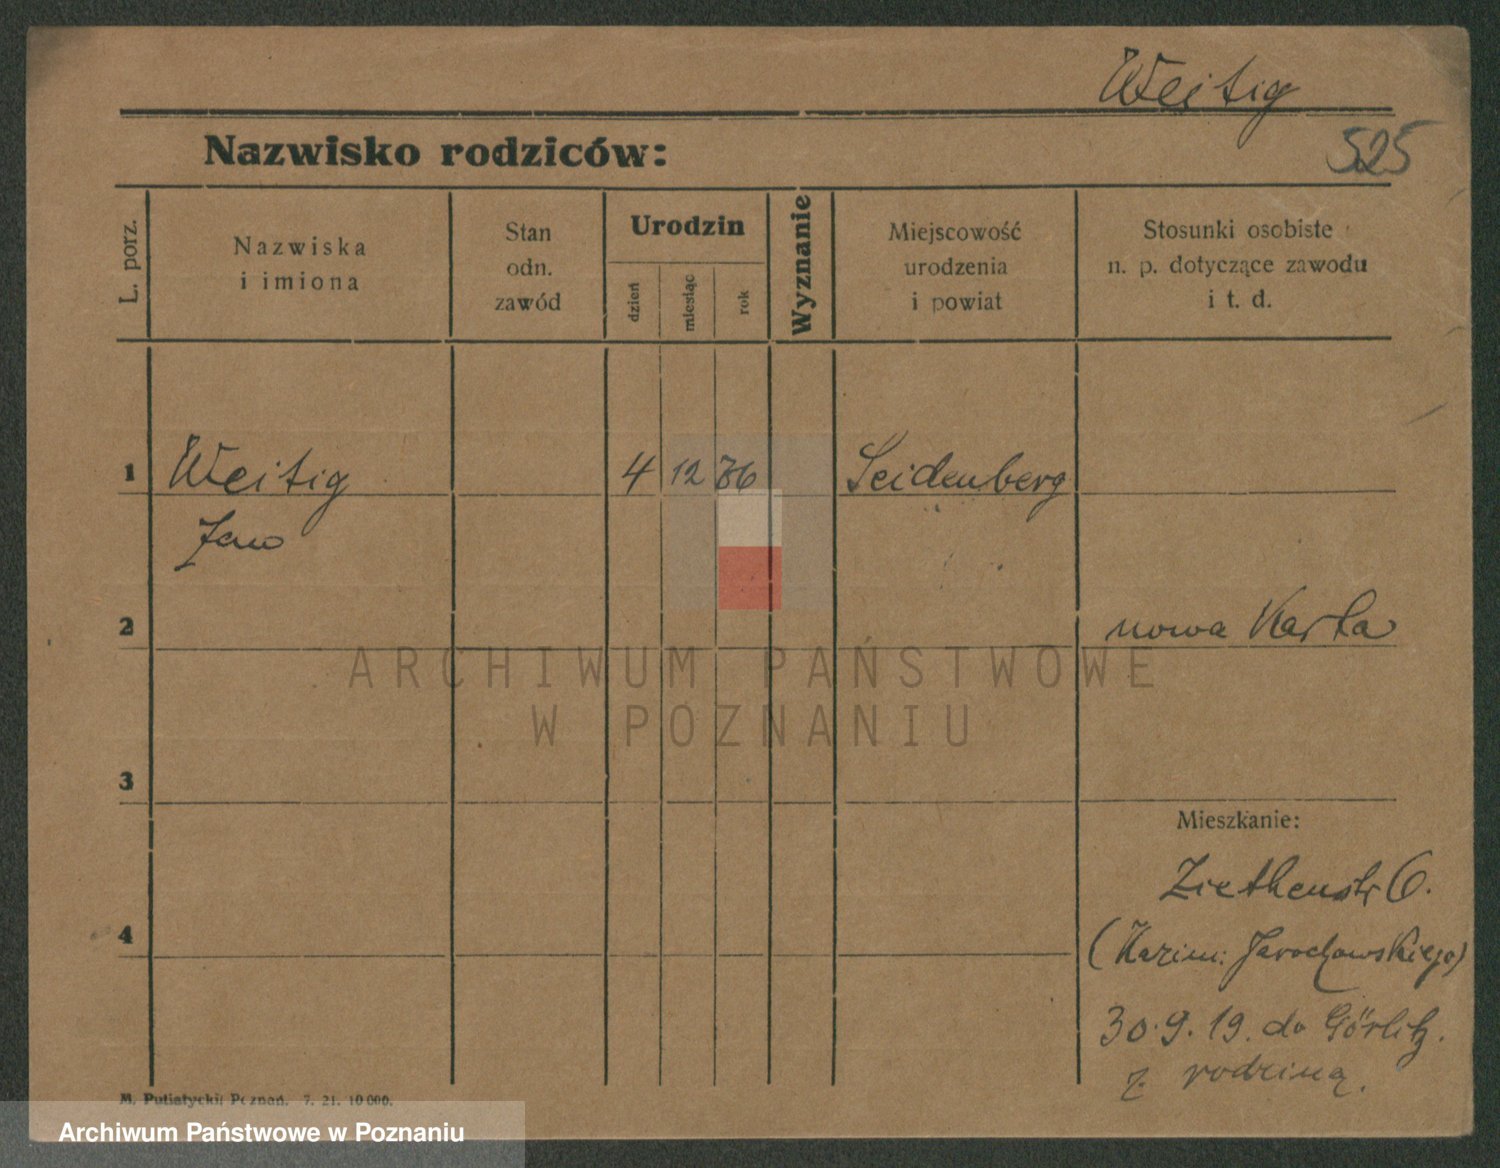 Weitig
Nazwisko rodziców:
525
L. porz.
Nazwiska
i imiona
Stan
odn.
zawód
Urodzin
dzień
miesiąc
rok
Wyznanie
Miejscowość
urodzenia
i powiat
Stosunki osobiste
n. p. dotyczące zawodu
i t. d.
1 Weitig 4 12 76 Seidenberg
Jan
2 nowa Karta
ARCHIWUM PAŃSTWOWE
W POZNANIU
3
Mieszkanie:
Ziethenstr 6.
4 (Kazim: Jarochowskiego)
30.9.19. do Görlitz.
z rodziną.
M. Putiatycki Poznań. 7. 21. 10 000.
Archiwum Państwowe w Poznaniu